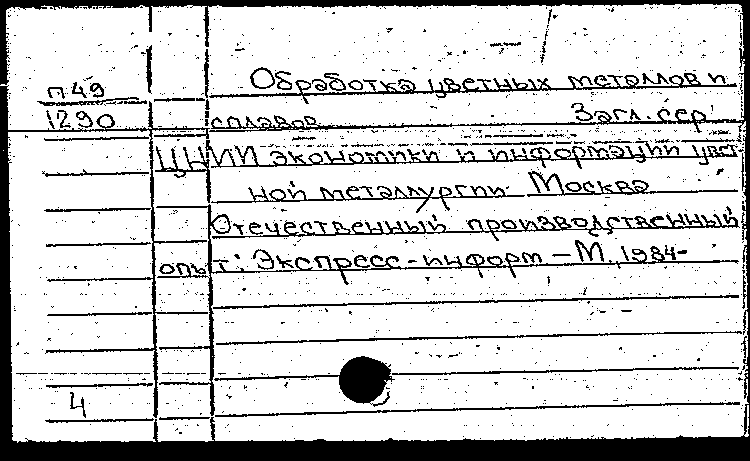 Обработка цветных металлов и
п49
1290
сплавов Загл. сер.
ЦНИИ экономики и информации цвет
ной металлургии Москва
Отечественный производственный
опыт: Экспресс-информ – М., 1984-
4